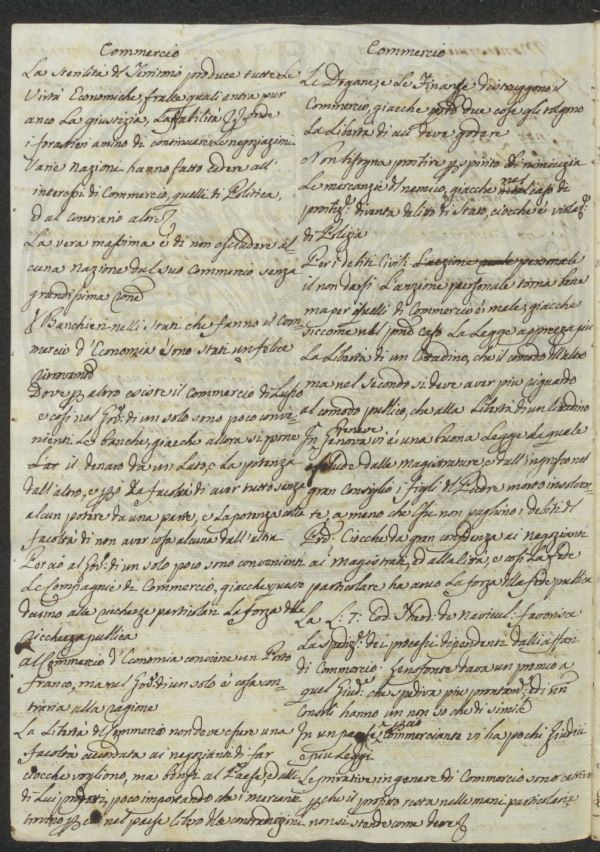 Commercio
La sterilità del Territorio produce tutte le
Virtù Economiche, fralle quali entra pur
anco la giustizia, l'affabilità onde
i forastieri amino di continuare le negoziazioni
Varie Nazioni hanno fatto cedere all'
interessi di Commercio, quelli di Politica,
ed al contrario altre
La vera massima è di non escludere al-
cuna nazione dal suo Commercio senza
grandissima
I Banchieri nelli Stati che fanno il Com-
mercio d'Economia sono stati un felice
ritrovato
Dove altro esiste il Commercio di Lusso
e così nel di un solo sono poco conve-
nienti le banche, giacchè allora si pone
il denaro da un lato, e la potenza
dall'altro, e la facoltà di aver tutto senza
alcun potere da una parte, e la potenza colla
facoltà di non aver cosa alcuna dall'altra
Perciò al di un solo poco sono convenienti
le Compagnie di Commercio, giacchè queste
danno alle ricchezze particolari la forza della
ricchezza pubblica
Al Commercio d'Economia conviene un Porto
franco, ma nel di un solo è cosa con-
traria alla ragione
La Libertà di Commercio non deve essere una
facoltà accordata ai negozianti di far
ciocchè vogliono, ma bensì al Paese, ed alli
di Lui poco importando che i mercanti
nel paese libero delle contradizioni
Commercio
Le Dogane, e le Finanze distruggono il
Commercio, giacchè due cose gli tolgono
la Libertà di cui deve godere
Non bisogna punire spirito di nimicizia
le mercanzie del nemico, giacchè nel caso di
diventa delitto di Stato, ciocchè è
di Polizia
Per i debiti Civili
il non darsi l'azione personale torna bene
ma per quelli di Commercio è male, giacchè
siccome nel caso la Legge apprezza più
la Libertà di un Cittadino, che il comodo dell'altro
ma nel secondo si deve aver più riguardo
al comodo pubblico, che alla Libertà di un Cittadino
Geneve
In Genova vi è una buona Legge la quale
esclude dalle magistrature, e dall'ingresso nel
gran Consiglio i figli del Padre morto insolven-
te, a meno che Essi non paghino i debiti del
Ciocchè da gran confidenza ai negozianti
ai Magistrati, ed alla Città, e così la fede
particolare ha anco la forza della fede pubblica
La L: 7: Cod. Theod. de Navicul: favorisce
la dei processi dipendenti dalli affari
di Commercio: Zenofonte dava un premio a
quel che spediva più Ed i
Consoli hanno un non so che di simile
In un paese Commerciante vi ha pochi Giudici
e più Leggi
Le privative in genere di Commercio sono cattive
che il profitto resta nelle mani particolari, e
non si stende come deve